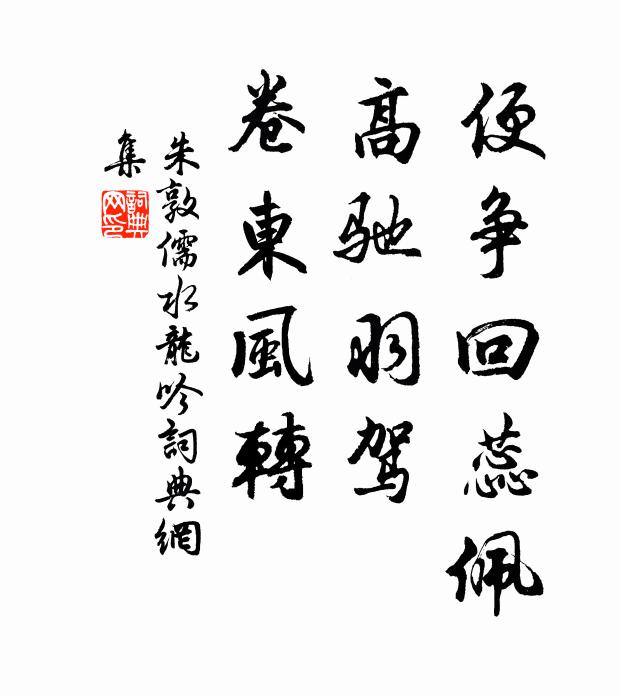 便争回蕊佩
高驰羽驾
卷東風轉
朱敦儒水龍吟詞典網
集
詞典
网印